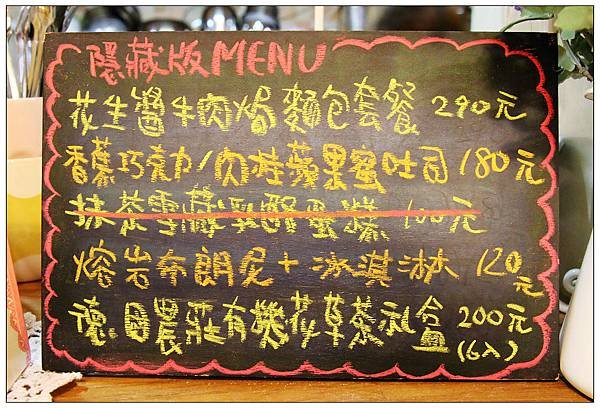 隱藏版MENU
花生醬牛肉焗麵包套餐 290元
香蕉巧克力/肉桂蘋果蜜吐司 180元
抹茶雪藏乳酪蛋糕 100元
熔岩布朗尼+冰淇淋 120元
德國農莊有機花草茶禮盒 200元
(6入)